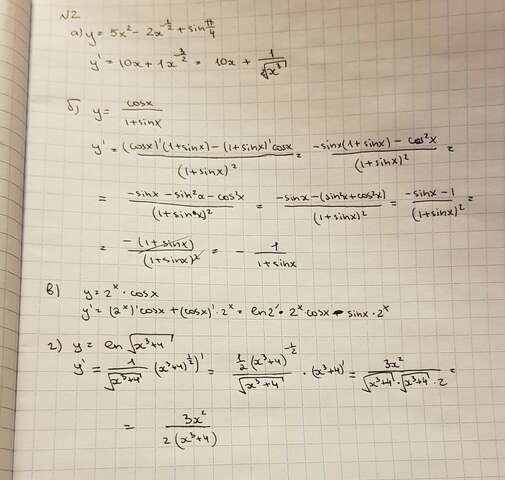 №2
а) y = 5x² - 2x^(-1/2) + sin π/4
y' = 10x + 1x^(-3/2) = 10x + 1/√(x³)
б) y = cosx/(1+sinx)
y' = ((cosx)'(1+sinx) - (1+sinx)'cosx)/(1+sinx)² = (-sinx(1+sinx) - cos²x)/(1+sinx)² =
= (-sinx - sin²x - cos²x)/(1+sinx)² = (-sinx - (sin²x + cos²x))/(1+sinx)² = (-sinx - 1)/(1+sinx)² =
= -(1+sinx)/(1+sinx)² = - 1/(1+sinx)
в) y = 2ˣ · cosx
y' = (2ˣ)'cosx + (cosx)' · 2ˣ = ln2 · 2ˣ cosx - sinx · 2ˣ
г) y = ln √(x³+4)
y' = 1/√(x³+4) · ((x³+4)^(1/2))' = (1/2 (x³+4)^(-1/2))/√(x³+4) · (x³+4)' = 3x²/(√(x³+4) · √(x³+4) · 2) =
= 3x²/(2(x³+4))